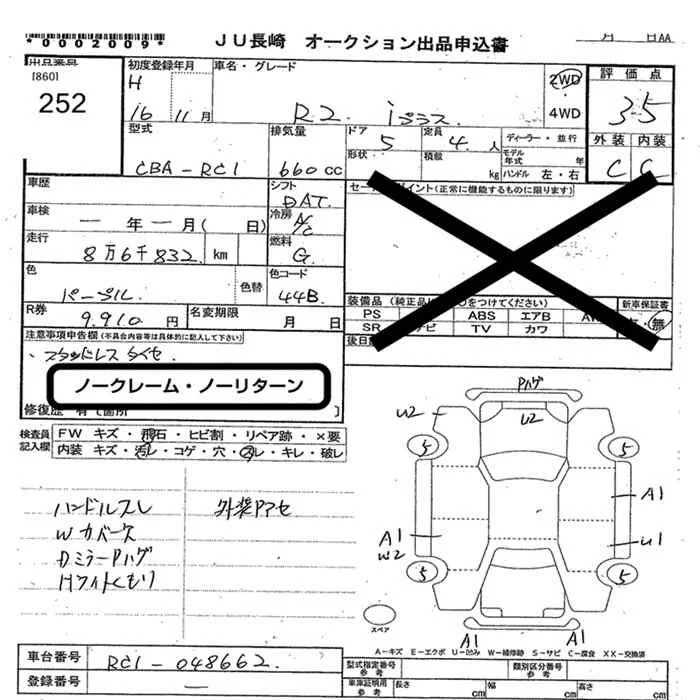 *0002009*
JU長崎 オークション出品申込書
月 日AA
出品業員
[860]
252
初度登録年月
H
16年 11月
車名・グレード
R2 iプラス
2WD
・
4WD
評価点
3.5
型式
CBA-RC1
排気量
660cc
ドア
5
定員
4人
ディーラー・並行
形状
積載
kg
モデル年式
年
ハンドル 左・右
外装 内装
C C
車歴
シフト
DAT.
車検
一年一月( 日)
冷房
A/C
走行
8万6千832. km
燃料
G.
色
パープル.
色替
色コード
44B.
R券
9.910円
名変期限
月 日
イント(正常に機能するものに限ります)
装備品(純正品
をつけてください)
新車保証書
PS
ABS
エアB
SR
ナビ
TV
カワ
・無
後日
注意事項申告欄(不具合内容等は具体的に記入して下さい)
・スタッドレスタイヤ.
ノークレーム・ノーリターン
修復歴 有(箇所 ]
検査員記入欄
FW キズ・飛石・ヒビ割・リペア跡・×要
内装 キズ・汚レ・コゲ・穴・スレ・キレ・破レ
ハンドルスレ
Wカバーズ
DミラーPハゲ
Hライトくもり
外装Pアセ
Pハゲ
U2
U2
5
5
A1
A1
W2
U1
5
5
A1
A1
スペア
A-キズ E-エクボ U-凹み W-補修跡 S-サビ C-腐食 XX-交換済
車台番号
RC1-048662.
登録番号
—
型式指定番号
参考
類別区分番号
参考
車庫証明用
参考
長さ
cm
幅
cm
高さ
cm